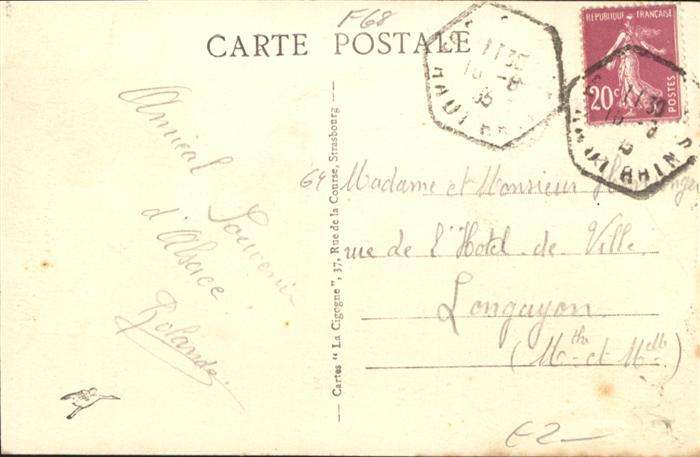 F68
CARTE POSTALE
REPUBLIQUE FRANÇAISE
20c
POSTES
1130
10 -8
35
HAUT RHIN
1130
10 8
35
HAUT RHIN
Amical
Souvenir
d'Alsace
Rolande.
Cartes "La Cigogne", 37, Rue de la Course, Strasbourg
64
Madame et Monsieur
rue de l'Hotel-de-Ville
Longuyon.
(Mthe et Mlle)
E2-